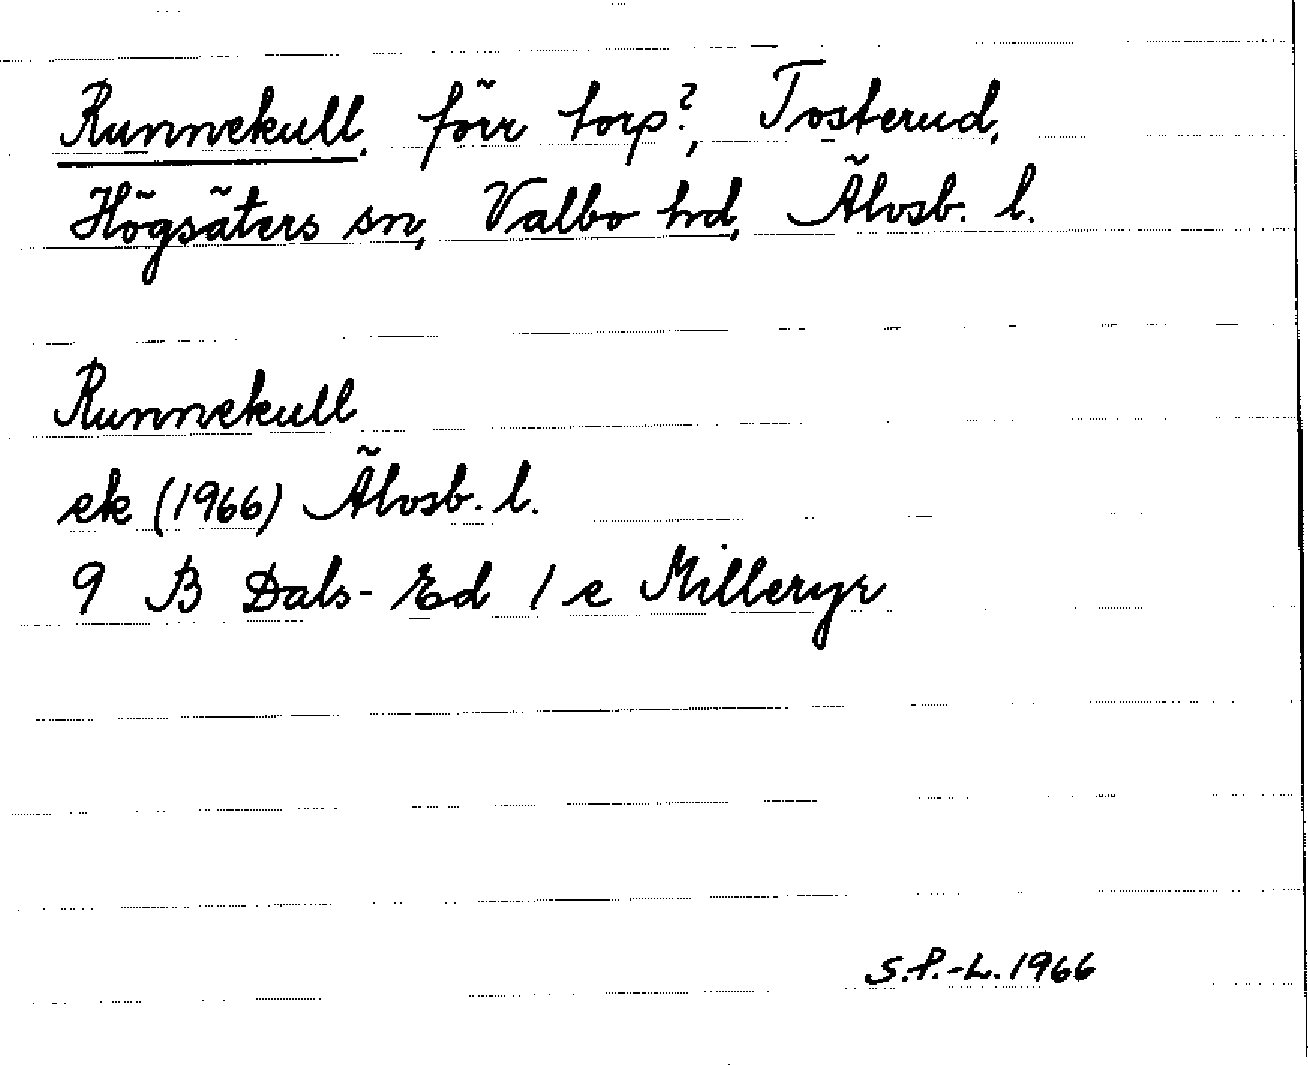 Runnekull, förr torp?, Tosterud,
Högsäters sn, Valbo hd, Älvsb. l.
Runnekull
ek (1966) Älvsb. l.
9 B Dals-Ed 1 e Milleryr
S.P.-L. 1966